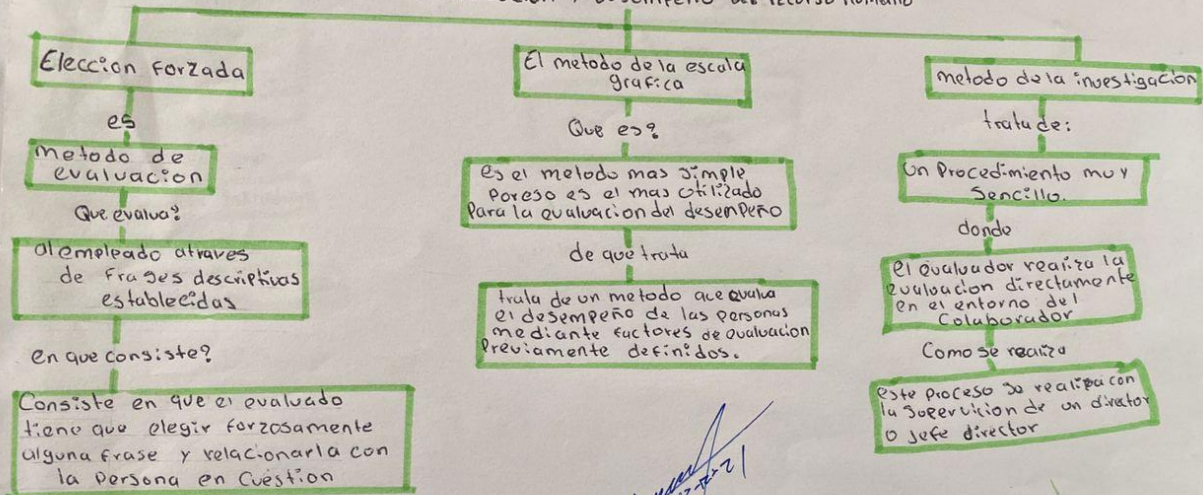 DESEMPEÑO DEL RECURSO HUMANO
Eleccion Forzada
es
metodo de
evaluacion
Que evalua?
al empleado atraves
de frases descriptivas
establecidas
en que consiste?
Consiste en que el evaluado
tiene que elegir forzosamente
alguna frase y relacionarla con
la persona en Cuestion
El metodo de la escala
grafica
Que es?
es el metodo mas simple
por eso es el mas utilizado
Para la evaluacion del desempeño
de que trata
trata de un metodo que evalua
el desempeño de las personas
mediante factores de evaluacion
Previamente definidos.
metodo de la investigacion
trata de:
Un Procedimiento muy
Sencillo.
donde
el evaluador realiza la
evaluacion directamente
en el entorno del
Colaborador
Como se realiza
este proceso se realiza con
la supervicion de un director
o jefe director